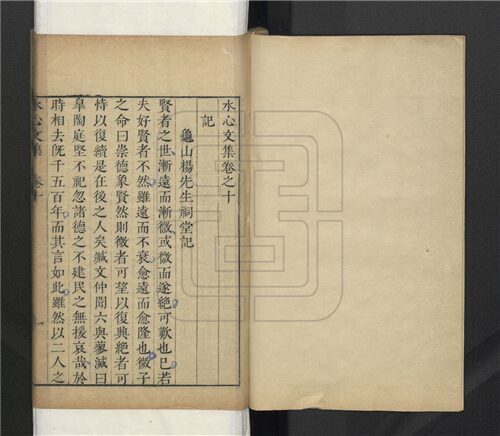 水心文集卷之十
記
龜山楊先生祠堂記
賢者之世漸遠而漸微或微而遂絶可歎也已若
夫好賢者不然雖遠而不衰愈遠而愈隆也微子
之命曰崇德象賢然則微者可望以復興絶者可
恃以復續是在後之人矣臧文仲聞六與蓼滅曰
臯陶庭堅不祀忽諸德之不建民之無援哀哉於
時相去旣千五百年而其言如此雖然以二人之
水心文集 卷十 一